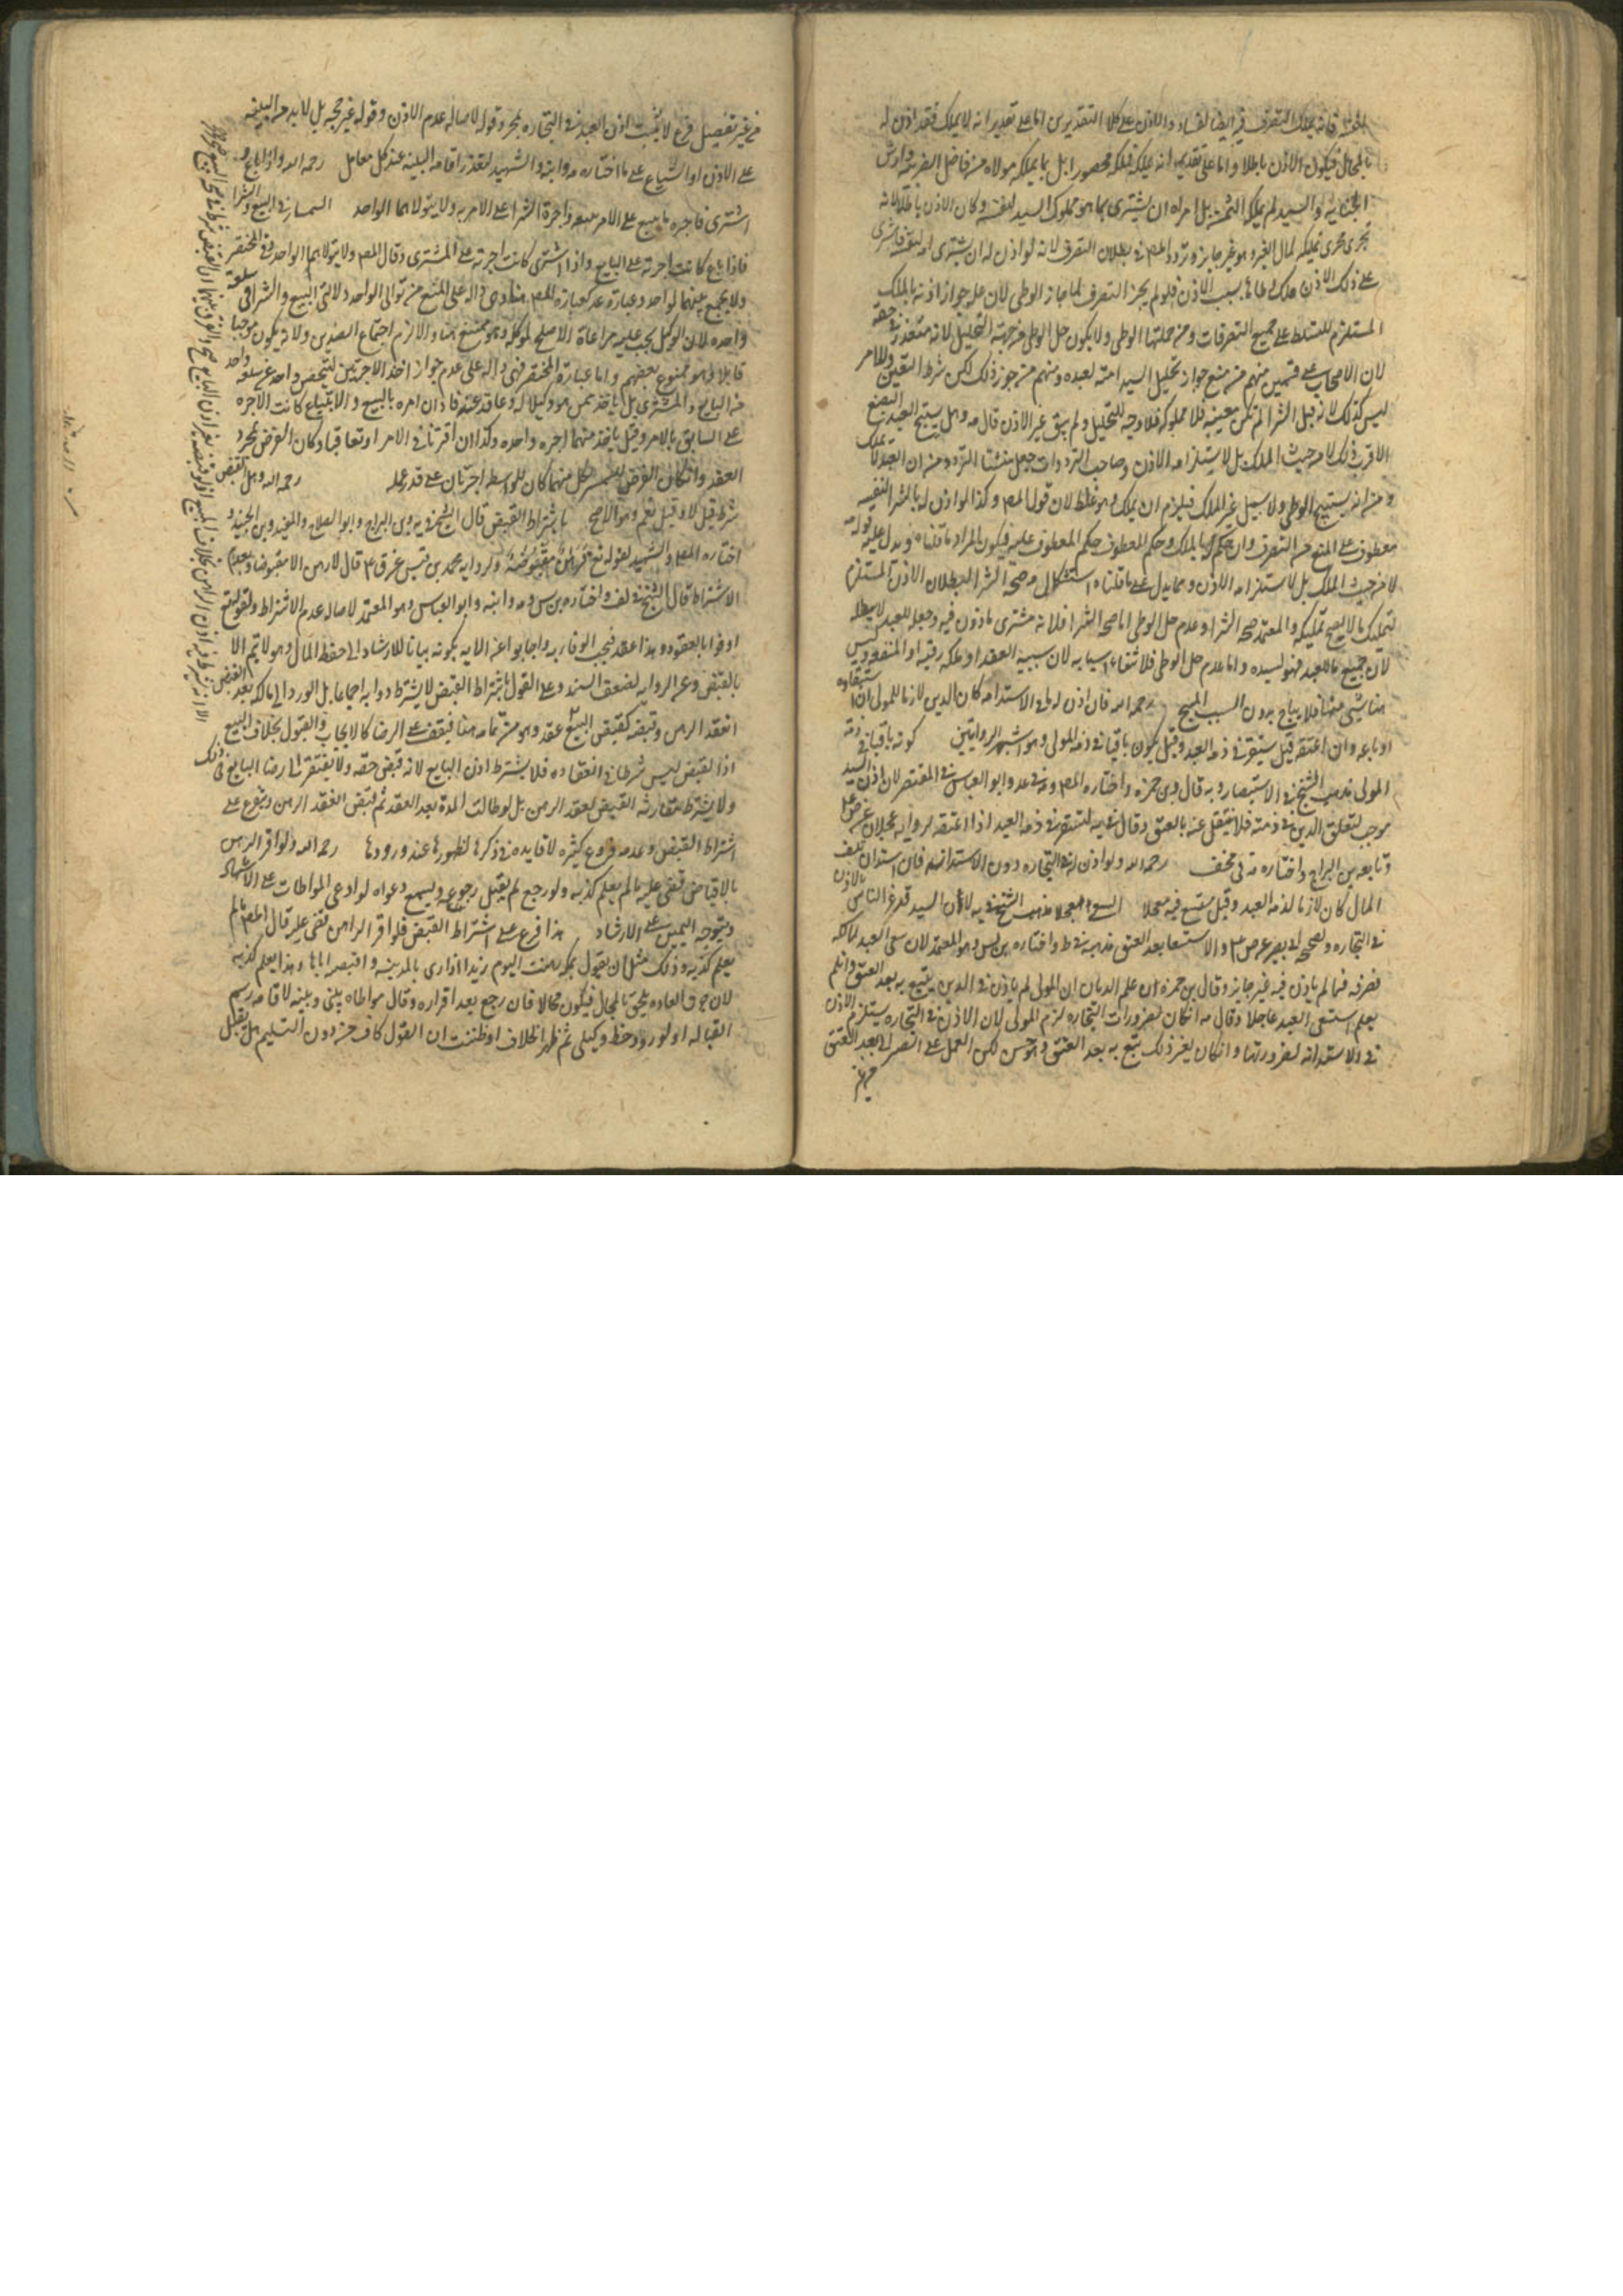 فانه يملك التصرف فيه ايضا لفساد الاذن على كلا التقديرين اما على تقدير انه لا يملك فقد اذن له
بالمحال فيكون الاذن باطلا واما على تقدير انه يملك فملكه محصورا بل بما يملكه مولاه من فاضل الضريبة وارش
الجنايه والسيد لم يملكه الثمن بل امراه ان يشترى بما هو مملوك السيد لنفسه وكان الاذن باطلا لانه
يجرى مجرى تمليكه لمال الغير وهو غير جايز وتردد المصنف في بطلان التصرف لانه لو اذن له ان يشترى امه لنفسه فاشترى
على ذلك الاذن ملك وطأها بسبب الاذن فلو لم يجز التصرف لما جاز الوطى لان عله جوازه اذنه بالملك
المستلزم للتسلط على جميع التصرفات ومن جملتها الوطى ولا يكون حل الوطى من جهة التحليل لانه متعذر في حقه
لان الاصحاب على قسمين منهم من منع جواز تحليل السيد امته لعبده ومنهم من جوز ذلك لكن شرط التعيين والامر
ليس كذلك لانه قبل الشرا لم تكن معينه فلا مملوكه فلا وجه للتحليل ولم يبق غير الاذن قال وهل يستبيح العبد البضع
الاقرب ذلك لا من حيث الملك بل لاستلزامه الاذن وصاحب الترددات جعل منشا التردد من ان العبد لا يملك
و من انه يستبيح الوطى ولا سبيل غير الملك فيلزم ان يملك وهو غلط لان قول المصنف وكذا لو اذن له بالشرا لنفسه
معطوف على المنع من التصرف وان حكم له بالملك وحكم المعطوف حكم المعطوف عليه فيكون المراد ما قلناه ويدل عليه قوله
لا من حيث الملك بل لاستلزامه الاذن ومما يدل على ما قلناه استشكال صحة الشرا لبطلان الاذن المستلزم
لتمليك ما لا يصح تمليكه والمعتمد صحه الشرا وعدم حل الوطى اما صحه الشرا فلانه مشترى ماذون فيه وجعله للعبد لا يبطله
لان جميع ما للعبد فهو لسيده واما عدم حل الوطى فلانتفاء اسبابه لان سببه العقد او ملك رقبه او المنفعه وليس
هنا شيء منها فلا يباح بدون السبب المبيح رحمه الله فان اذن له في الاستدانه كان الدين لازما للمولى ان استبقاه
او باعه وان اعتقه قيل يستقر في ذمه العبد وقيل يكون باقيا في ذمه المولى وهو اشهر الروايتين كونه باقيا في ذمة
المولى مذهب الشيخ في الاستبصار وبه قال بن حمزه واختاره المصنف وابو العباس في المقتصر لان اذن السيد
موجب لتعلق الدين في ذمته فلا ينتقل عنه بالعتق وقال في يه يستقر في ذمه العبد اذا اعتقه لروايه عجلان عن ص ع
وتابعه بن البراج واختاره في مختلف رحمه الله ولو اذن له في التجاره دون الاستدانه فان استدان وتلف
المال كان لازما لذمه العبد وقيل يستسع فيه معجلا السعي المعجل مذهب الشيخ في يه لان السيد قد غر الناس بالاذن
في التجاره وصححه ابي بصير عن ص ع والاستسعا بعد العتق مذهبه في ط واختاره بن ادريس وهو المعتمد لان سعى العبد لمالكه
فصرفه فيما لم ياذن فيه غير جايز وقال بن حمزه ان علم الديان ان المولى لم ياذن في الدين يتبع به بعد العتق وان لم
يعلم استسعى العبد عاجلا وقال ان كان لضرورات التجاره لزم المولى لان الاذن في التجاره يستلزم الاذن
في الاستدانه لضرورتها وان كان لغير ذلك يتبع به بعد العتق وهو حسن لكن العمل على الصبر الى بعد العتق
من غير
من غير تفصيل فرع لا يثبت اذن العبد في التجاره بمجرد قوله لاصاله عدم الاذن وقوله غير حجه بل لا بد من البينه
على الاذن او الشياع على ما اختاره وابنه والشهيد لتعذر اقامه البينه عند كل معامل رحمه الله واذا باع و
اشترى فاجره ما يبيع على الامر ببيعه واجرة الشرا على الامر به ولا يتولاهما الواحد السمسار في البيع والشرا
فاذا باع كانت اجرته على البايع واذا اشترى كانت اجرته على المشترى وقال المصنف ولا يتولاهما الواحد وفي المختصر
ولا يجمع بينهما لواحد وعبارة عد كعبارة المصنف هنا وهى داله على المنع من توالى الواحد دلالتى البيع والشرا في سلعه
واحده لان الوكيل يجب عليه مراعاة الاصلح لموكله وهو ممتنع هنا والا لزم اجتماع الضدين ولانه يكون موجبا
قابلا وهو ممنوع بعضهم واما عبارة المختصر فهى داله على عدم جواز اخذ الاجرتين لشخص واحد عن سلعه واحده
من البايع والمشترى بل ياخذ ممن هو وكيلا له وعاقد عنه فاذان امره بالبيع والابتياع كانت الاجره
على السابق بالامر وقيل ياخذ منهما اجره واحده وكذا ان اقترنا في الامر او تعاقبا وكان الغرض مجرد
العقد وان كان الغرض لكل منهما كان للواسطه اجرتان على قدر عمله رحمه الله وهل القبض
شرط قيل لا وقيل نعم وهو الاصح باشتراط القبض قال الشيخ في يه وبن البراج وابو الصلاح والمفيد وبن الجنيد و
اختاره المصنف والشهيد لقوله تع فَرِهانٌ مَقْبُوضَةٌ ولروايه محمد بن قيس عن ق ع قال لا رهن الا مقبوضا وبعدم
الاشتراط قال الشيخ في لف واختاره بن س وابنه وابو العباس وهو المعتمد لاصاله عدم الاشتراط ولقوله تع
اوفوا بالعقود وهذا عقد فيجب الوفا به واجابوا عن الايه بكونه بيانا للارشاد الى حفظ المال وهو لا يتم الا
بالقبض وعن الروايه لضعف السند وعلى القول باشتراط القبض لا يشترط دوامه اجماعا بل الورد الى مالكه بعد القبض
انعقد الرهن وقبضه كقبض البيع عقد وهو من تمامه هنا فيقف على الرضا كالايجاب والقبول بخلاف البيع
اذ القبض ليس شرطا في انعقاده فلا يشترط اذن البايع لانه قبض حقه ولا يفتقر الى رضا البايع في ذلك
ولا يشترط مقارنه القبض لعقد الرهن بل لو طالت المدة بعد العقد ثم قبض انعقد الرهن ويتفرع على
اشتراط القبض وعدمه فروع كثيره لا فايده في ذكرها لظهورها عند ورودها رحمه الله ولو اقر الرهن
بالاقباض قضى عليه ما لم يعلم كذبه ولو رجع لم يقبل رجوعه ويسمع دعواه لو ادعى المواطات على الاشهاد
ويتوجه اليمين على هذا فرع على اشتراط القبض فلو اقر الراهن قضى عليه قال المصنف ما لم
يعلم كذبه وذلك مثل ان يقول بمكه رهنت اليوم زيدا دارى بالمدينه واقبضه اياها وهذا يعلم كذبه
لان خرق العاده يلحق بالمحال فيكون محالا فان رجع بعد اقراره وقال مواطاه بينى وبينه لاقامه رسم
القباله او لورود خط وكيلى ثم ظهر الخلاف او ظننت ان القول كاف من دون التسليم هل يقبل